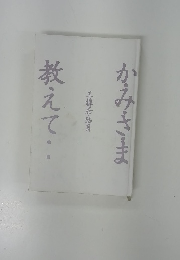 かみさま
教えて・・